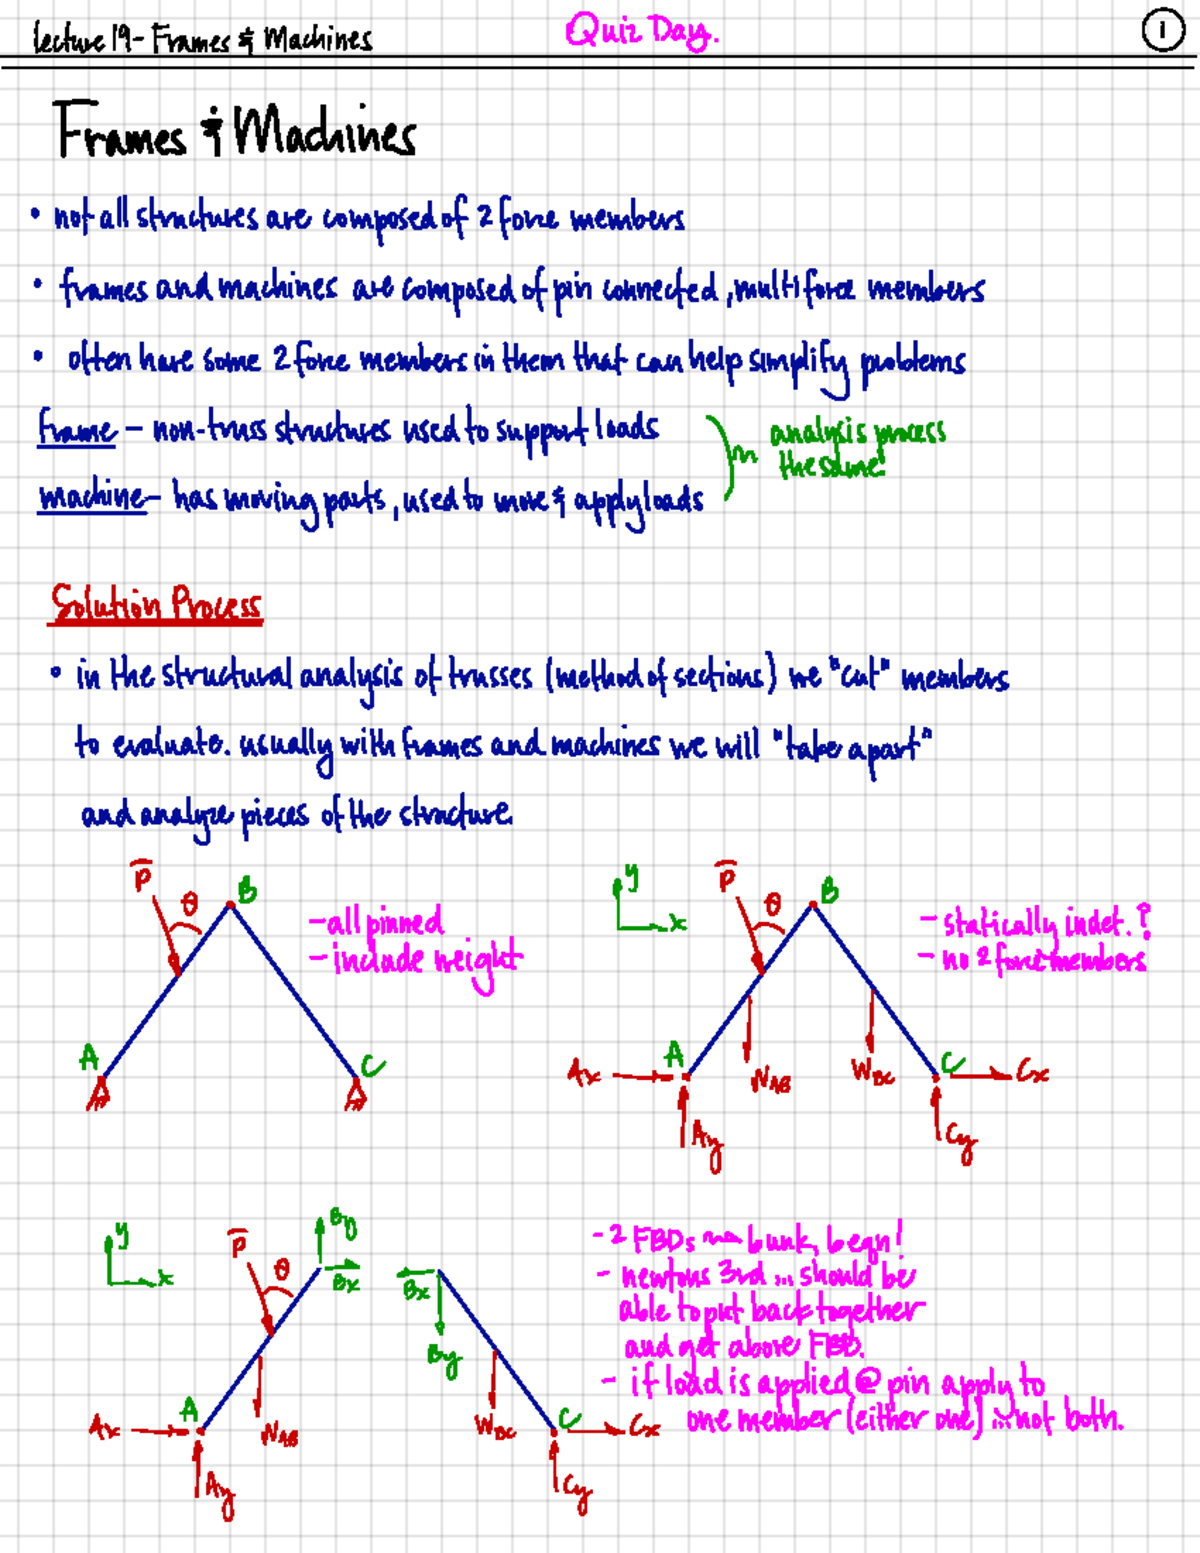 lecture 19 - Frames & Machines
Quiz Day.
1
Frames & Machines
• not all structures are composed of 2 force members
• frames and machines are composed of pin connected, multiforce members
• often have some 2 force members in them that can help simplify problems
frame - non-truss structures used to support loads
machine - has moving parts, used to move & apply loads
analysis process
the same!
Solution Process
• in the structural analysis of trusses (method of sections) we "cut" members
to evaluate. usually with frames and machines we will "take apart"
and analyze pieces of the structure.
P θ B
- all pinned
- include weight
A C
y x
P θ B
- statically indet.?
- no 2 force members
Ax A WAB WBC C Cx
Ay Cy
y x
P θ By Bx
Bx By
- 2 FBDs
- newtons 3rd ... should be
able to put back together
and get above FBD.
- if load is applied @ pin apply to
one member (either one) not both.
Ax A WAB WBC C Cx
Ay Cy